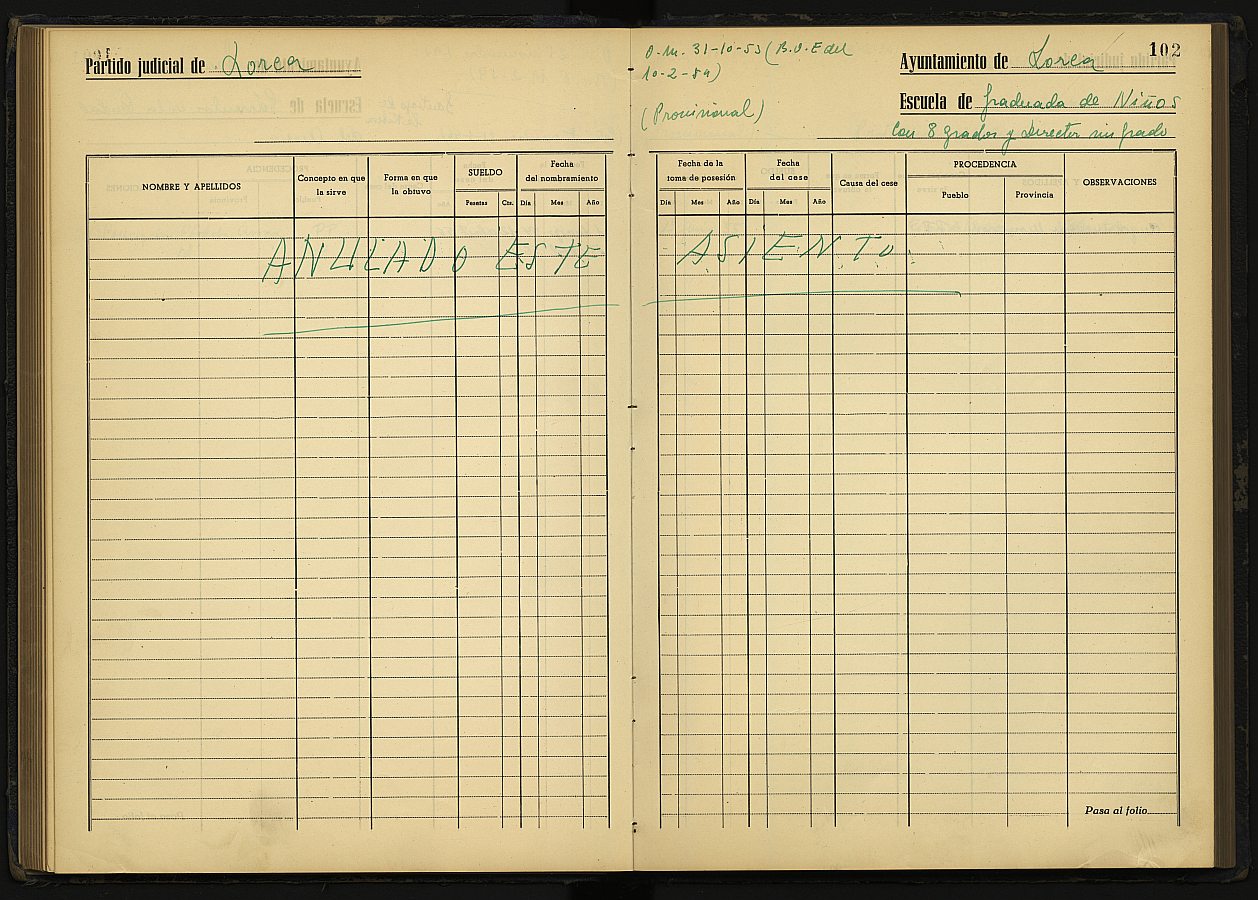 Partido judicial de Lorca
O.M. 31-10-53 (B.O.E del
10-2-54)
(Provisional)
102
Ayuntamiento de Lorca
Escuela de Graduada de Niños
Con 8 grados y Director sin grado
NOMBRE Y APELLIDOS
Concepto en que
la sirve
Forma en que
la obtuvo
SUELDO
Pesetas Cts.
Fecha
del nombramiento
Día Mes Año
Fecha de la
toma de posesión
Día Mes Año
Fecha
del cese
Día Mes Año
Causa del cese
PROCEDENCIA
Pueblo Provincia
OBSERVACIONES
ANULADO ESTE ASIENTO
Pasa al folio